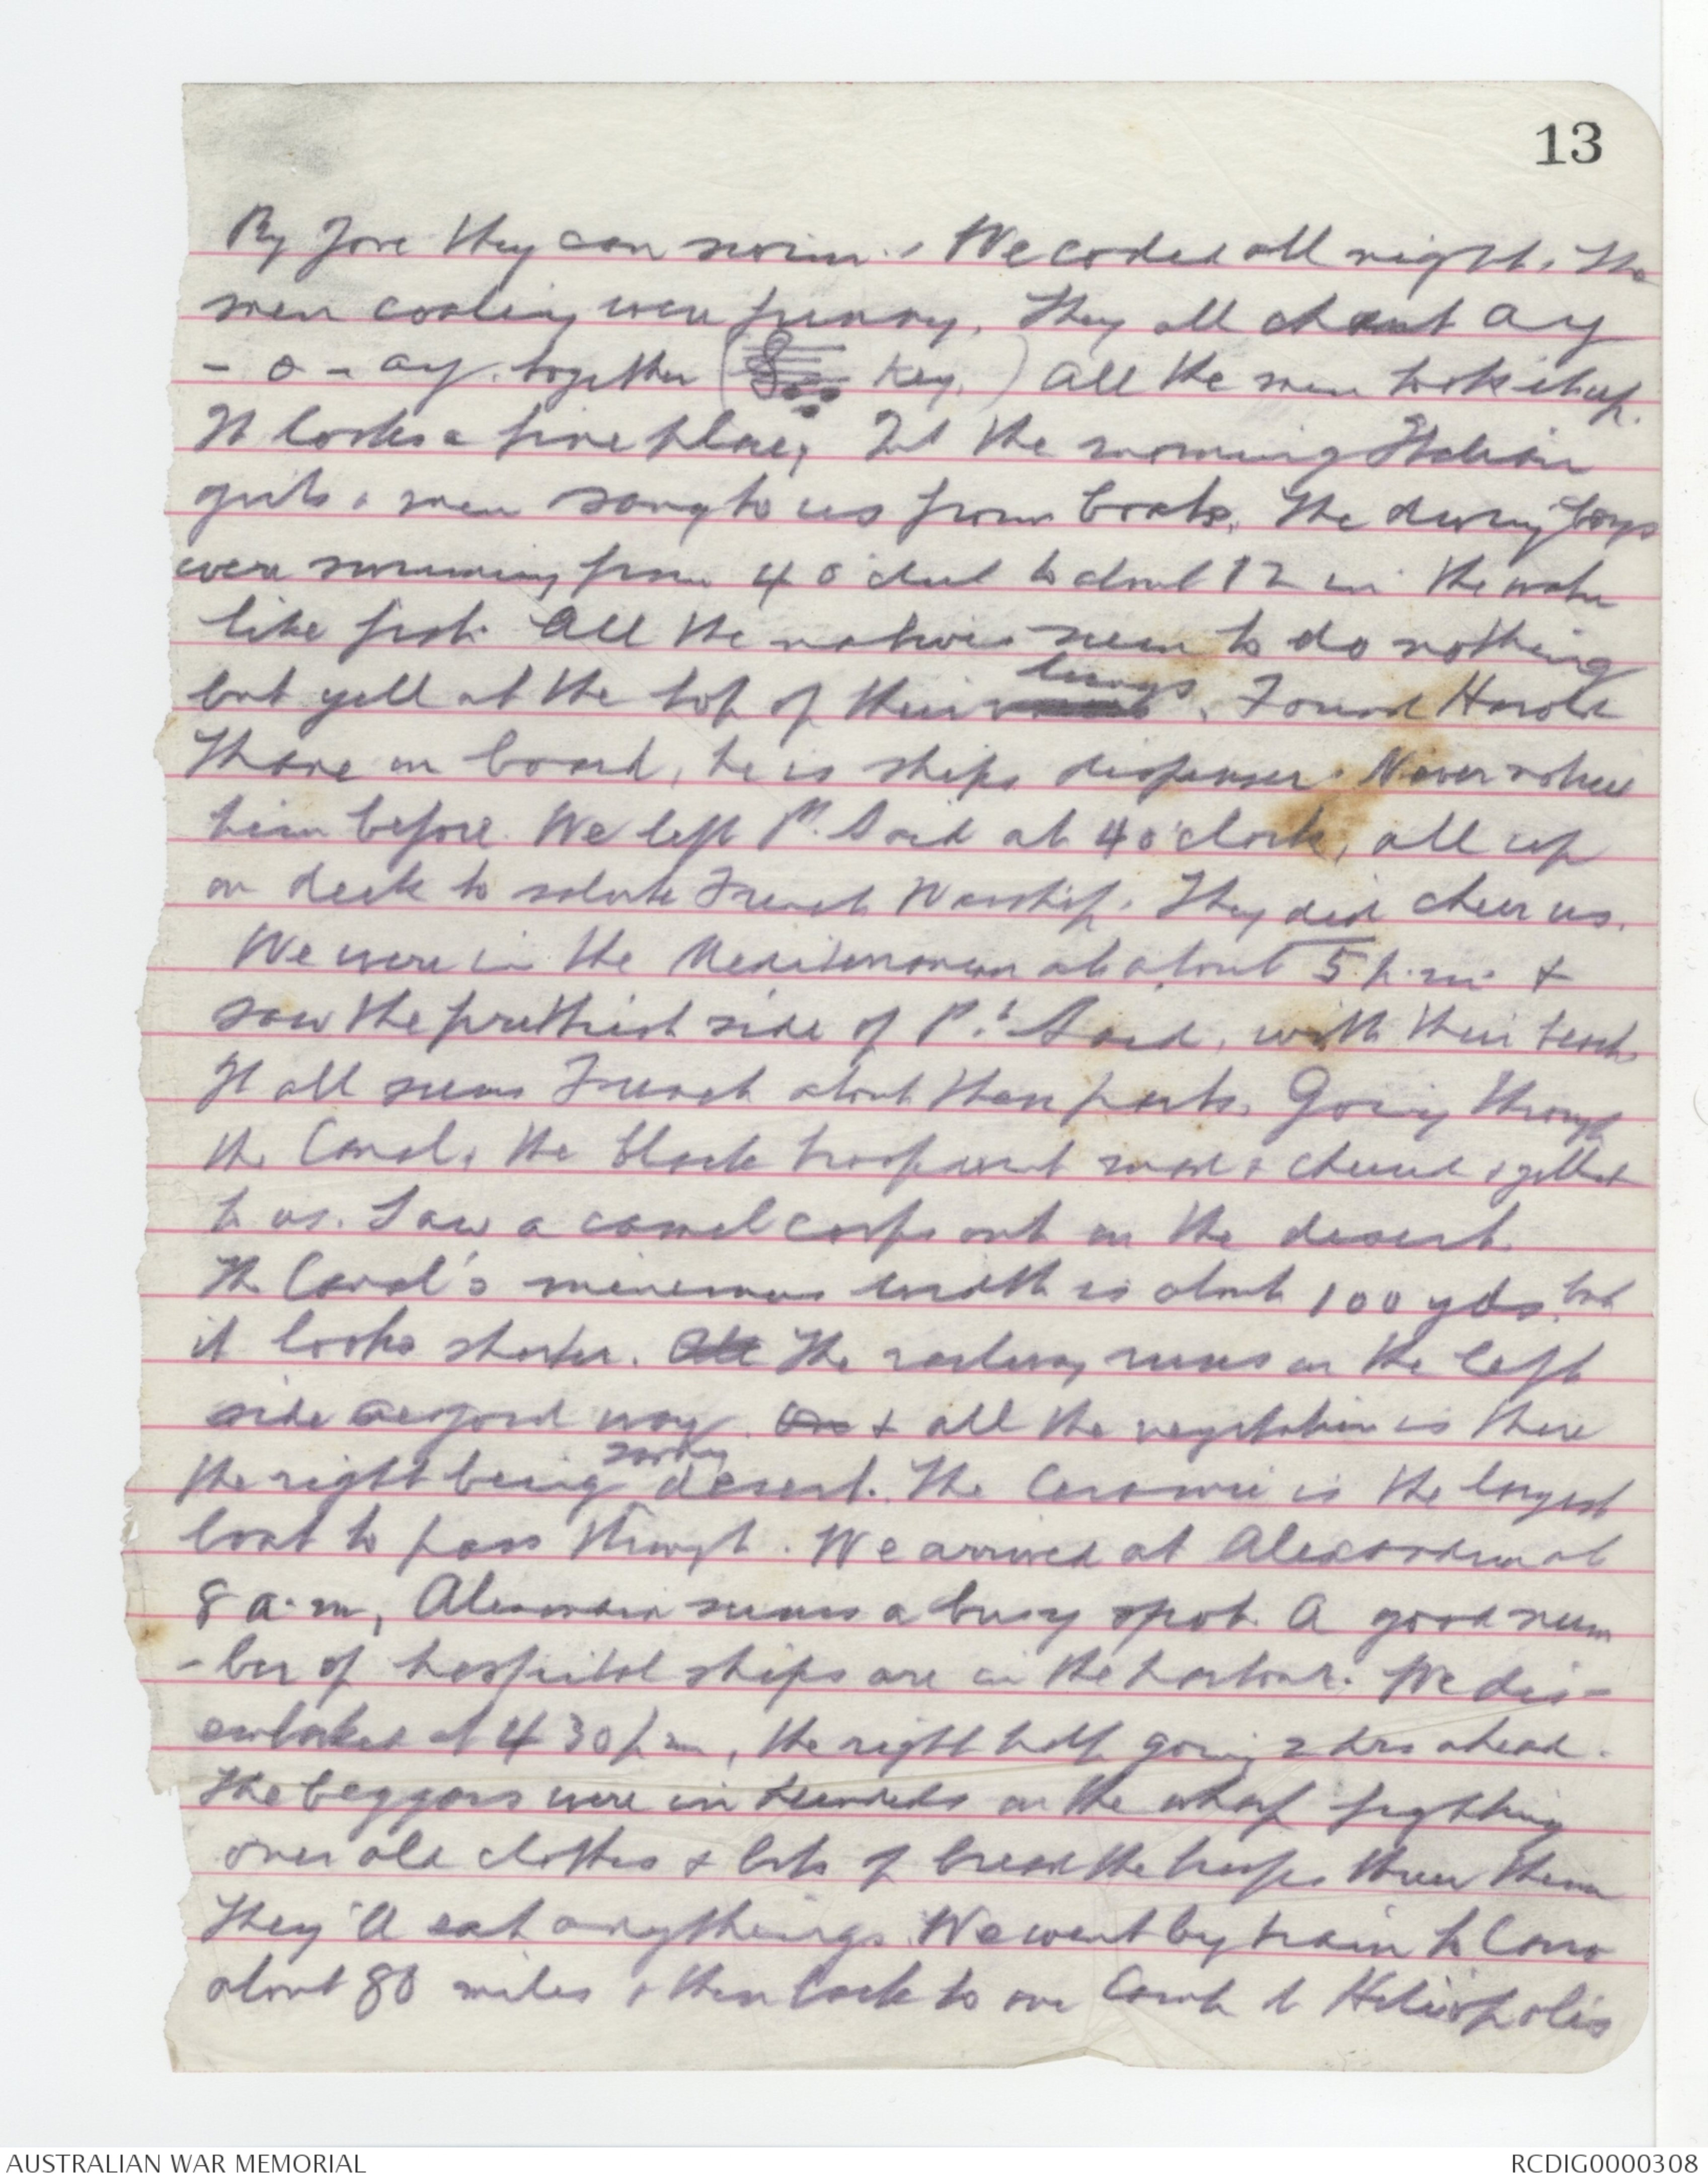 13
By Jove they can swim. We coaled all night. The
men coaling were funny. They all chant ay
- o - ay. together ( key.) All the men took it up.
It looks a fine place, In the morning Italian
girls & men sang to us from boats. The diving boys
were swimming from 4 o'clock to about 12 in the water
like fish. All the natives seem to do nothing
but yell at the top of their lungs. Found Harold
on board, he is ships dispenser. Never
him before. We left Pt. Said at 4 o'clock, all up
on deck to salute French Warship. They did cheer us.
We were in the Mediterranean at about 5 p.m. &
saw the prettiest side of Pt. Said, with their beach
It all seems French about these parts. Going through
the Canal, the black troops & cheered & yelled
to us. Saw a camel corps out on the desert.
The Canal's minimum width is about 100 yds. but
it looks shorter. The railway runs on the left
side a good way & all the vegetation is there
the right being sandy desert. The is the largest
boat to pass through. We arrived at Alexandria at
8 a.m, Alexandria seems a busy spot. A good num
-ber of hospital ships are in the harbour. We dis-
embarked at 4 30 p m, the right half going 2 hrs ahead.
The beggars were in hundreds on the wharf fighting
over old clothes & bits of bread the troops threw them
They'll eat anything. We went by train to Cairo
about 80 miles & then back to our Camp at Heliopolis
AUSTRALIAN WAR MEMORIAL
RCDIG0000308